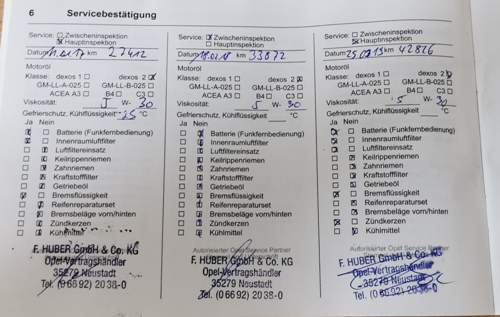 6 Servicebestätigung
Service: Zwischeninspektion
Hauptinspektion
Datum km 27412
Motoröl
Klasse: dexos 1 dexos 2
GM-LL-A-025 GM-LL-B-025
ACEA A3 B4 C3
Viskosität: 5 W- 30
Gefrierschutz, Kühlflüssigkeit -35 °C
Ja Nein
Batterie (Funkfernbedienung)
Innenraumluftfilter
Luftfiltereinsatz
Keilrippenriemen
Zahnriemen
Kraftstofffilter
Getriebeöl
Bremsflüssigkeit
Reifenreparaturset
Bremsbeläge vorn/hinten
Zündkerzen
Kühlmittel
F. HUBER GmbH & Co. KG
Opel-Vertragshändler
35279 Neustadt
Tel. (0 66 92) 20 38-0
Service: Zwischeninspektion
Hauptinspektion
Datum km 33872
Motoröl
Klasse: dexos 1 dexos 2
GM-LL-A-025 GM-LL-B-025
ACEA A3 B4 C3
Viskosität: 5 W- 30
Gefrierschutz, Kühlflüssigkeit °C
Ja Nein
Batterie (Funkfernbedienung)
Innenraumluftfilter
Luftfiltereinsatz
Keilrippenriemen
Zahnriemen
Kraftstofffilter
Getriebeöl
Bremsflüssigkeit
Reifenreparaturset
Bremsbeläge vorn/hinten
Zündkerzen
Kühlmittel
Autorisierter Opel Service Partner
F. HUBER GmbH & Co. KG
Opel-Vertragshändler
35279 Neustadt
Tel. (0 66 92) 20 38-0
Service: Zwischeninspektion
Hauptinspektion
Datum km 42826
Motoröl
Klasse: dexos 1 dexos 2
GM-LL-A-025 GM-LL-B-025
ACEA A3 B4 C3
Viskosität: 5 W- 30
Gefrierschutz, Kühlflüssigkeit °C
Ja Nein
Batterie (Funkfernbedienung)
Innenraumluftfilter
Luftfiltereinsatz
Keilrippenriemen
Zahnriemen
Kraftstofffilter
Getriebeöl
Bremsflüssigkeit
Reifenreparaturset
Bremsbeläge vorn/hinten
Zündkerzen
Kühlmittel
Autorisierter Opel Service Partner
F. HUBER GmbH & Co. KG
Opel-Vertragshändler
35279 Neustadt
Tel. (0 66 92) 20 38-0